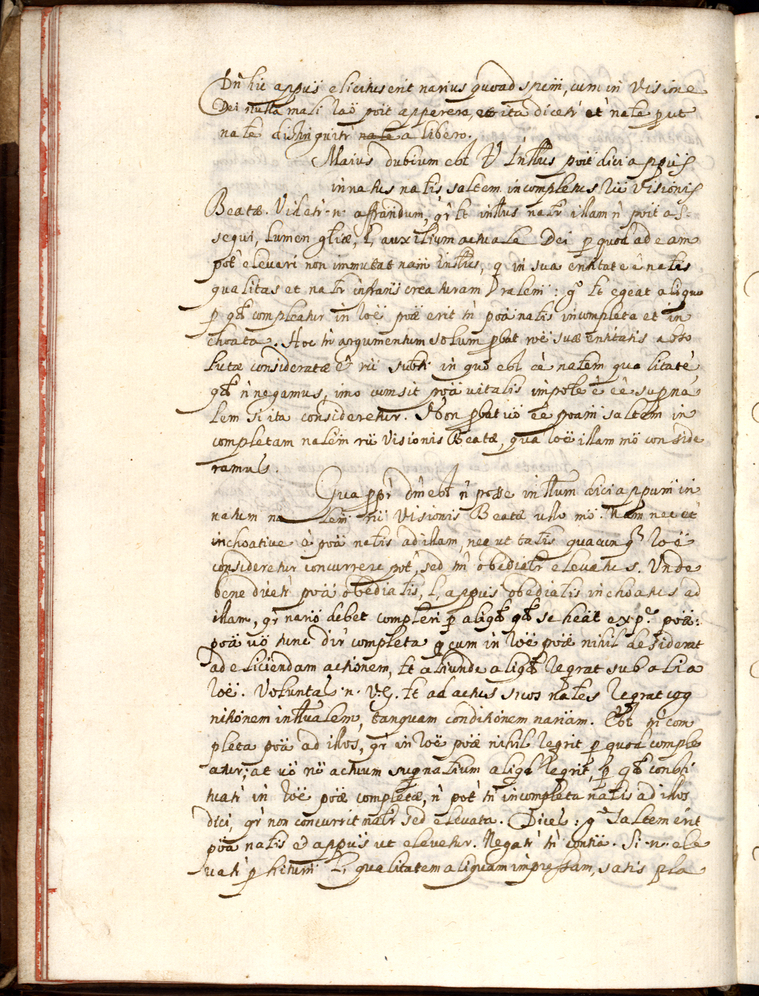 Dn̄ hic appus̄ elicitus erit narius quoad speciē, cum in visione
Dei nulla mali raō poīt apparere, et ita dicetr̄ et nale prut
nale distinguitr̄ nale a libero.
Maius dubium est Vt̄ Intlūs poīt dici appus̄
innatus nalis saltem incompletus r̄u visionis
Beatæ. Videtr̄ n. affirmandum, qr̄ lt intlūs natr̄ illam n̄ poīt as
sequi, lumen glīæ, l, auxilium actuale Dei p quod ad eam
pōt elevari non immutat nam̄ intlūs, q in sua entitate ē nalis
qualitas et
 egeat aliquo
p qd̄ compleatur in rōe poǣ erit tn̄ poā nalis incompleta et in
choata. Hoc tn̄ argumentum solum pbat rōe suæ entitatis abso
lutæ consideratæ
 in quo est eē nalem̄ qualitatē
qd̄ n̄ negamus, imo cum sit poā vitalis impōle ē eē supna
lem si ita consideretur. Non pbat vō eē poam̄ saltem in
completam nalem̄ r̄u visionis Beatæ, qua rōe illam mō conside
ramus.
Quappr̄ dm̄ est n̄ posse intlūm dici appum̄ in
natum nalem̄ r̄u visionis Beatæ ullo mō. Nam nec et
inchoative ē poā nalis ad illam, nec ut talis quacunq rōe
consideretur concurrere pōt, sed tn̄ obedialr̄ elevatus. Unde
bene dicetr̄ poā obedialis, l, appus̄ obedialis inchoatus ad
illam, qr̄ nariō debet compleri p aliqd̄ qd̄ se heat̄ ex p.e poǣ:
poā vō tunc dir̄ completa q cum in rōe poǣ nihil desiderat
ad eliciendam actionem, lt aliunde aliqd̄ reqrat sub alia
rōe. Voluntas n. v.g. lt ad actus suos nales reqrat cog
nitionem intlualem, tanquam conditionem nariam. Est tn̄ com
pleta poā ad illos, qr̄ in rōe poǣ nihil reqrit p quod comple
atur; at vō r̄u actuum supnalium aliqd̄ reqrit, p qd̄ consti
tuatr̄ in rōe poǣ completæ, n̄ pōt tn̄ incompleta nalis ad illos
dici, qr̄ non concurrit natr̄ sed elevata. Dices: go saltem erit
poā nalis ed appus̄ ut elevetur. Negatr̄ tn̄ contiā. Si n. ele
vatr̄ p hitum̄ l, qualitatem aliquam impressam, satis pla